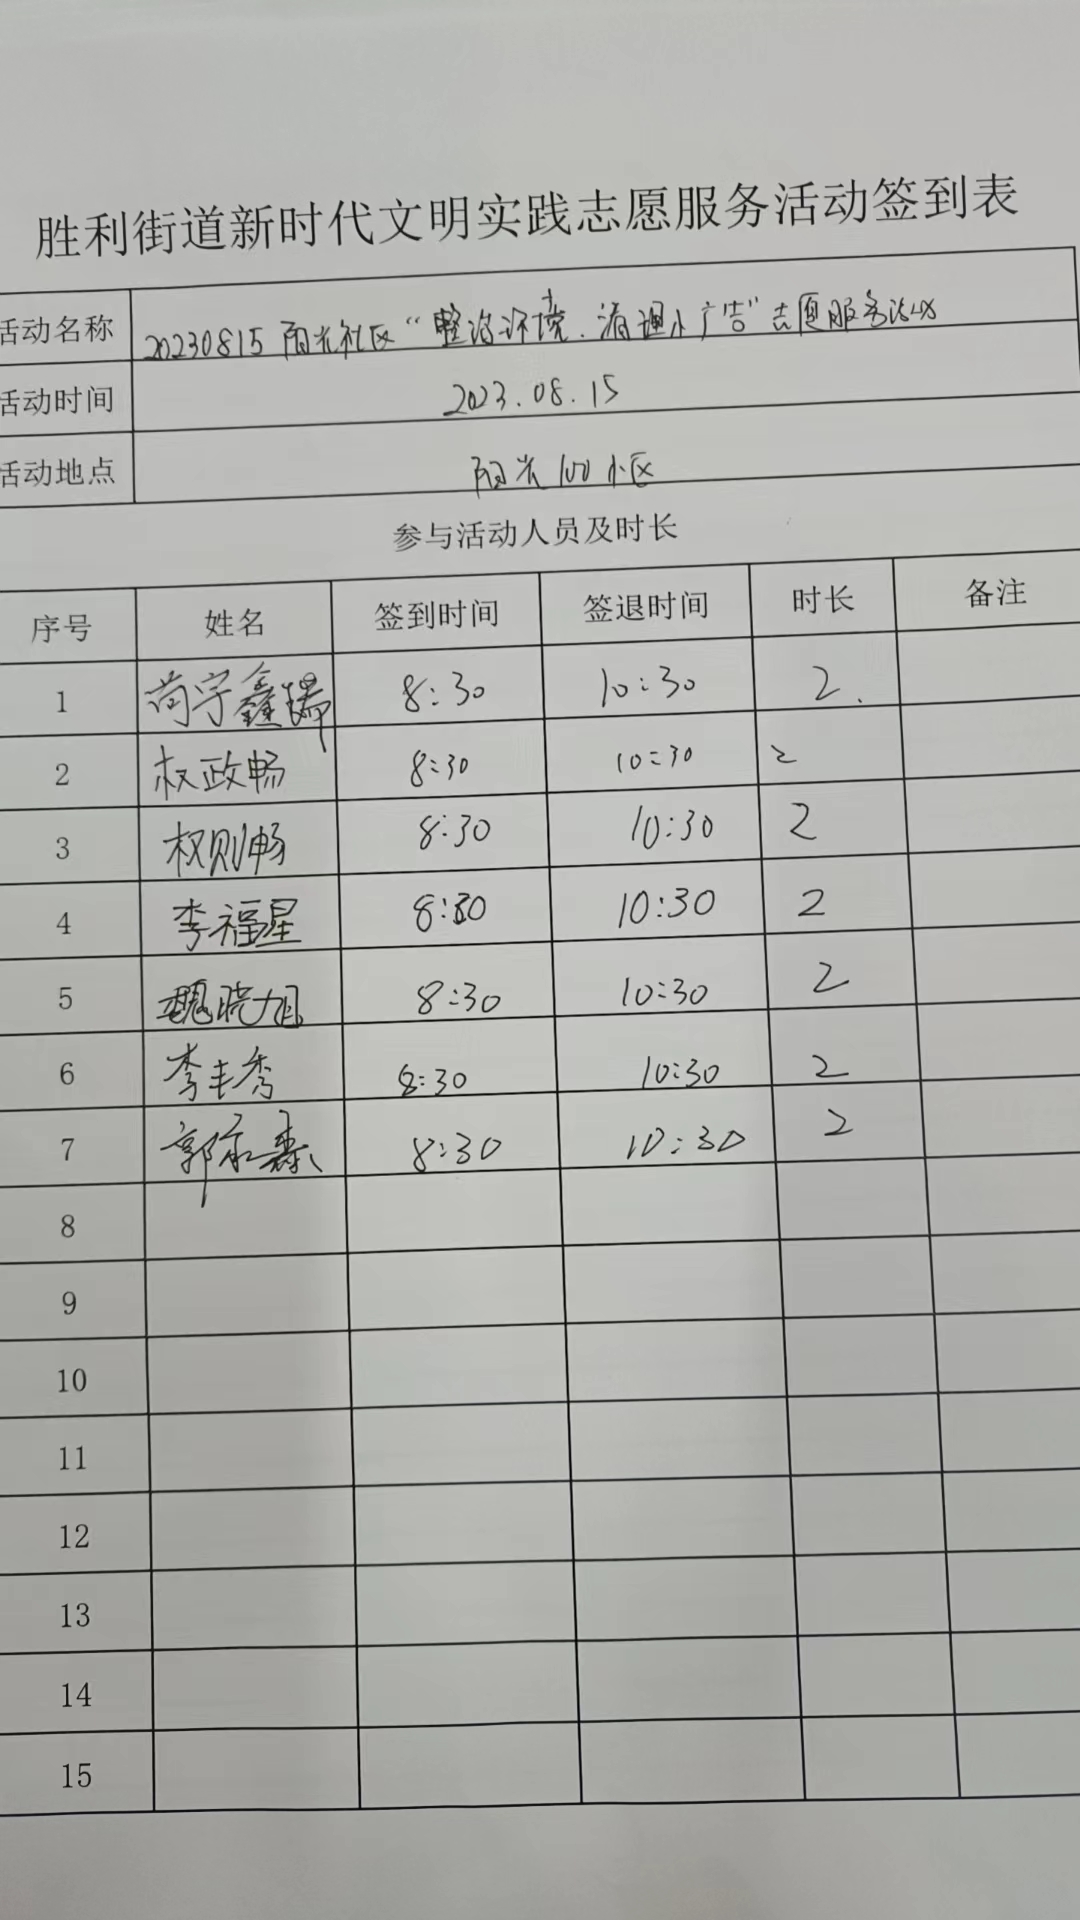 胜利街道新时代文明实践志愿服务活动签到表
活动名称 20230815 阳光社区“整治环境.清理小广告”志愿服务活动
活动时间 2023.08.15
活动地点 阳光100小区
参与活动人员及时长
序号 姓名 签到时间 签退时间 时长 备注
1 尚宇鑫瑞 8:30 10:30 2.
2 权政畅 8:30 10:30 2
3 权则畅 8:30 10:30 2
4 李福星 8:30 10:30 2
5 魏晓旭 8:30 10:30 2
6 李丰秀 8:30 10:30 2
7 郭 8:30 10:30 2
8
9
10
11
12
13
14
15